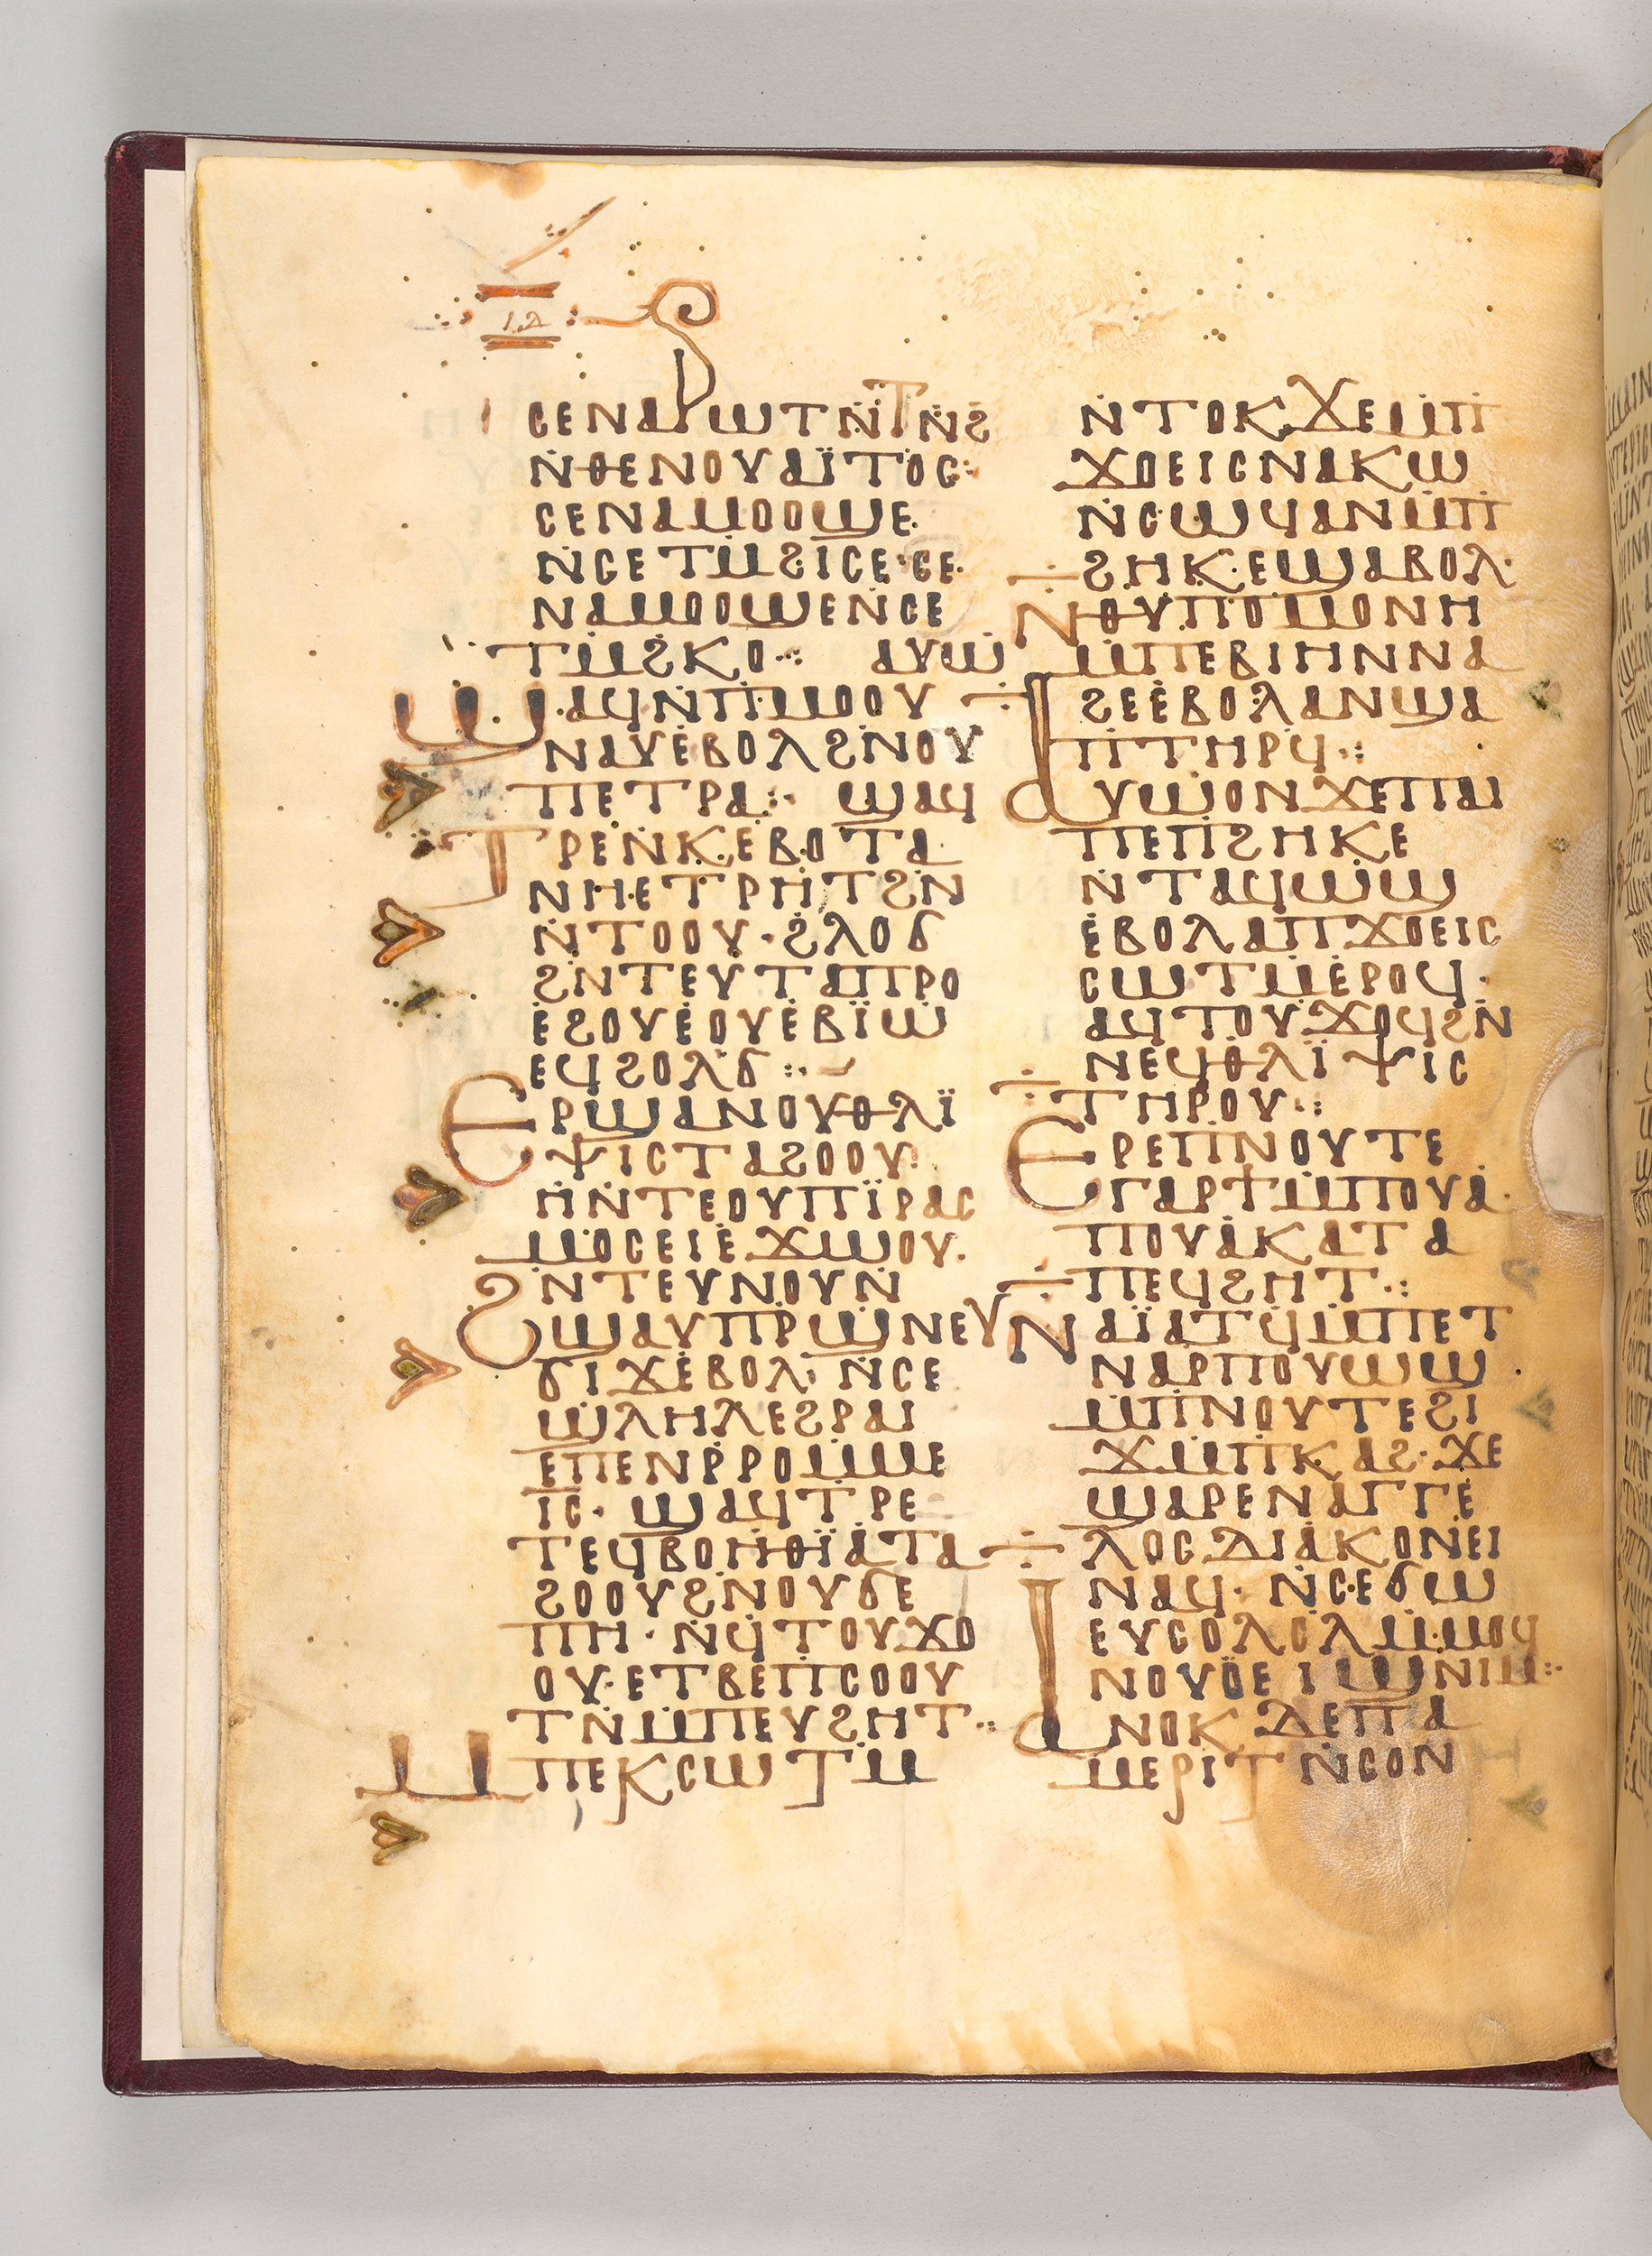 ⲓⲇ
ⲥⲉⲛⲁⲣⲱⲧⲛ̇ⲧⲛ̇ϩ
ⲛ̇ⲑⲉⲛⲟⲩⲁⲓ̈ⲧⲟⲥ:
ⲥⲉⲛⲁⲙⲟⲟϣⲉ·
ⲛ̇ⲥⲉⲧⲙ̇ϩⲓⲥⲉ·ⲥⲉ·
ⲛⲁⲙⲟⲟϣⲉⲛ̇ⲥⲉ
ⲧⲙ̇ϩⲕⲟ⁖ ⲁⲩⲱ
ϣⲁϥⲛ̇ⲡ̇ⲙⲟⲟⲩ
ⲛⲁⲩⲉ̇ⲃⲟⲗϩⲛ̇ⲟⲩ
ⲡⲉⲧⲣⲁ⁖ ϣⲁϥ
ⲧⲣⲉⲛ̇ⲕⲉⲃⲟⲧⲁ
ⲛⲏ·ⲉⲧⲣⲏⲧϩⲛ̇
ⲛ̇ⲧⲟⲟⲩ·ϩⲗⲟϭ
ϩⲛ̇ⲧⲉⲩⲧⲁⲡⲣⲟ
ⲉ̇ϩⲟⲩⲉ̇ⲟⲩⲉ̇ⲃⲓ̈ⲱ
ⲉϥϩⲟⲗϭ⁖
ⲉⲣϣⲁⲛⲟⲩⲑⲗⲓ̈
ⲯⲓⲥⲧⲁϩⲟⲟⲩ·
ⲏ̇ⲛ̇ⲧⲉⲟⲩⲡⲓ̈ⲣⲁⲥ
ⲙⲟⲥⲉⲓⲉ̇ϫⲱⲟⲩ·
ϩⲛ̇ⲧⲉⲩⲛⲟⲩⲛ̇
ϣⲁⲩⲡⲣ̇ϣⲛⲉⲩ
ϭⲓϫⲉ̇ⲃⲟⲗ·ⲛ̇ⲥⲉ
ϣⲗⲏⲗⲉϩⲣⲁⲓ
ⲉⲡⲉⲛⲣ̇ⲣⲟⲙ̇ⲙⲉ
ⲓⲥ· ϣⲁϥⲧⲣⲉ
ⲧⲉϥⲃⲟⲏⲑⲓ̈ⲁ̇ⲧⲁ
ϩⲟⲟⲩϩⲛ̇ⲟⲩϭⲉ
ⲡⲏ·ⲛ̇ϥⲧⲟⲩϫⲟ
ⲟⲩ·ⲉⲧⲃⲉⲡ̇ⲥⲟⲟⲩ
ⲧⲛ̇ⲙ̇ⲡⲉⲩϩⲏⲧ⁖
ⲙⲡⲉⲕⲥⲱⲧⲙ̇
ⲛ̇ⲧⲟⲕϫⲉⲙ̇ⲡ̇
ϫⲟⲉⲓⲥⲛⲁⲕⲱ
ⲛ̇ⲥⲱϥⲁⲛⲙ̇ⲡ̇
ϩⲏⲕ·ⲉϣⲁⲃⲟⲗ·
ⲛⲑⲩⲡⲟⲙⲟⲛⲏ
ⲙ̇ⲡⲉⲃⲓⲏⲛⲛⲁ
ϩⲉⲉ̇ⲃⲟⲗⲁⲛϣⲁ
ⲡ̇ⲧⲏⲣϥ⁖
ⲁⲩⲱⲟⲛϫⲉⲡⲁⲓ
ⲡⲉⲡ̇ϩⲏⲕⲉ
ⲛ̇ⲧⲁϥⲱϣ
ⲉ̇ⲃⲟⲗⲁⲡ̇ϫⲟⲉⲓⲥ
ⲥⲱⲧⲙ̇ⲉ̇ⲣⲟϥ·
ⲁϥⲧⲟⲩϫⲟϥϩⲛ̇
ⲛⲉϥⲑⲗⲓ̈ⲯⲓⲥ
ⲧⲏⲣⲟⲩ⁖
ⲉⲣⲉⲡ̇ⲛⲟⲩⲧⲉ
ⲅⲁⲣϯⲙ̇ⲡⲟⲩⲁ̇·
ⲡⲟⲩⲁ̇ⲕⲁⲧⲁ
ⲡⲉϥϩⲏⲧ⁖
ⲛⲁⲓ̈ⲁⲧϥⲙ̇ⲡⲉⲧ
ⲛⲁⲣⲡⲟⲩⲱϣ
ⲙ̇ⲡ̇ⲛⲟⲩⲧⲉϩⲓ
ϫⲙ̇ⲡ̇ⲕⲁϩ·ϫⲉ
ϣⲁⲣⲉⲛ̇ⲁⲅⲅⲉ̇
ⲗⲟⲥⲇⲓⲁ̇ⲕⲟⲛⲉⲓ
ⲛⲁϥ·ⲛ̇ⲥⲉϭⲱ
ⲉⲩⲥⲟⲗⲥⲗ̇ⲙ̇ⲙⲟϥ
ⲛⲟⲩⲟ̈ⲉⲓϣⲛⲓⲙ⁖
ⲁⲛⲟⲕⲇⲉⲡⲁ
ⲙⲉⲣⲓⲧ ⲛ̇ⲥⲟⲛ